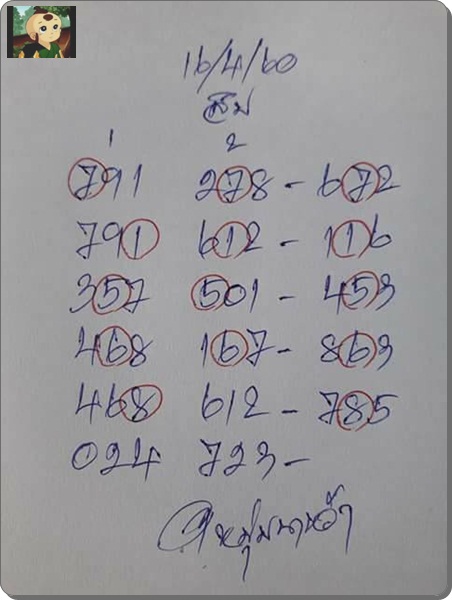 16/4/60
สิบ
1 2
791 278 - 672
791 612 - 116
357 501 - 453
468 167 - 863
468 612 - 785
024 723 -